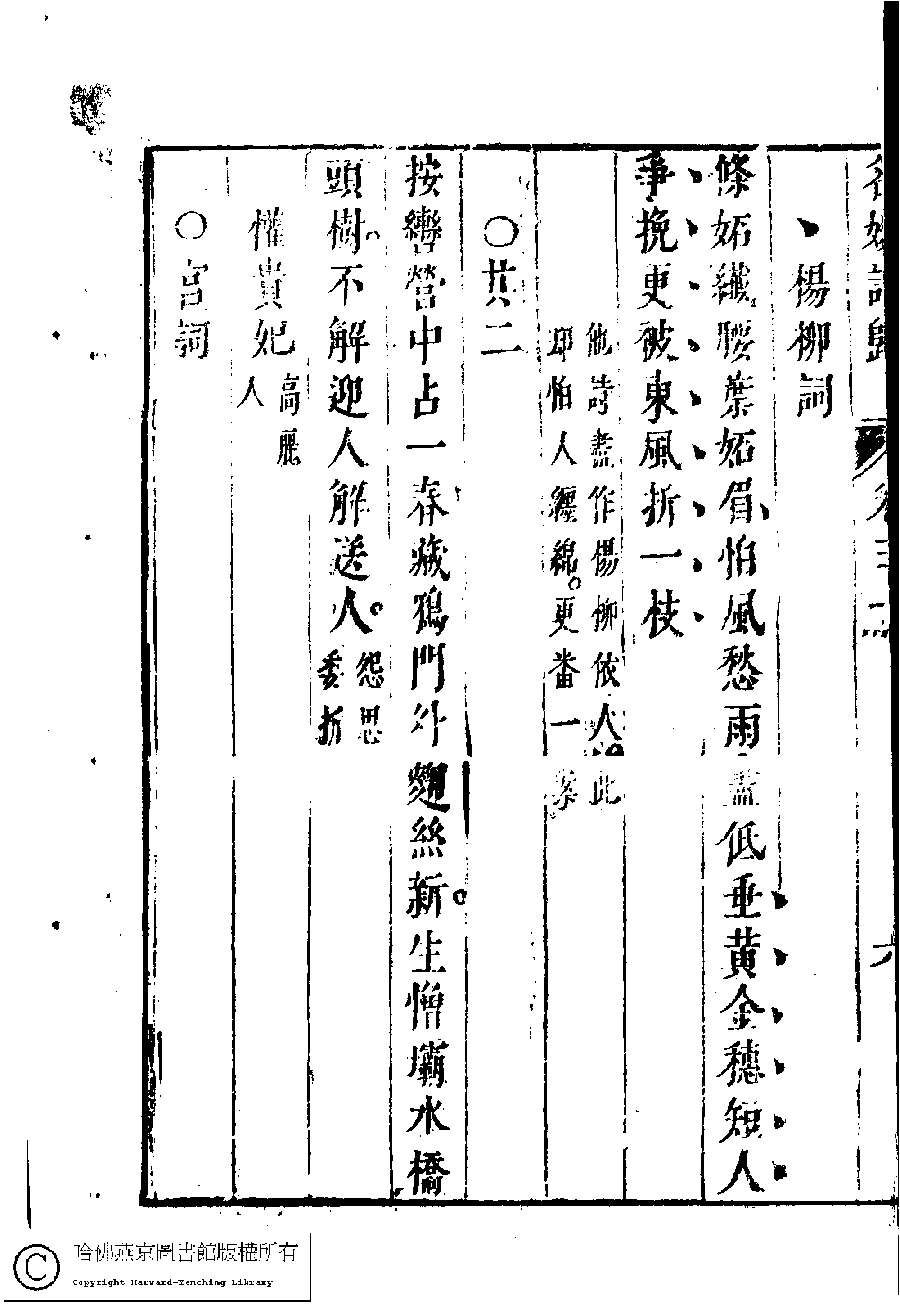 名媛詩歸 卷三二 六
楊柳詞
條妬纖腰葉妬眉怕風愁雨盡低垂黃金穗短人
爭挽更被東風折一枝
他詩盡作楊柳依人此
却怕人纏綿更番一案
○其二
按轡營中占一春藏鴉門外麴絲新生憎灞水橋
頭樹不解迎人解送人
怨思
委折
權貴妃
高麗
人
○宮詞
哈佛燕京圖書館版權所有
Copyright Harvard-Yenching Library